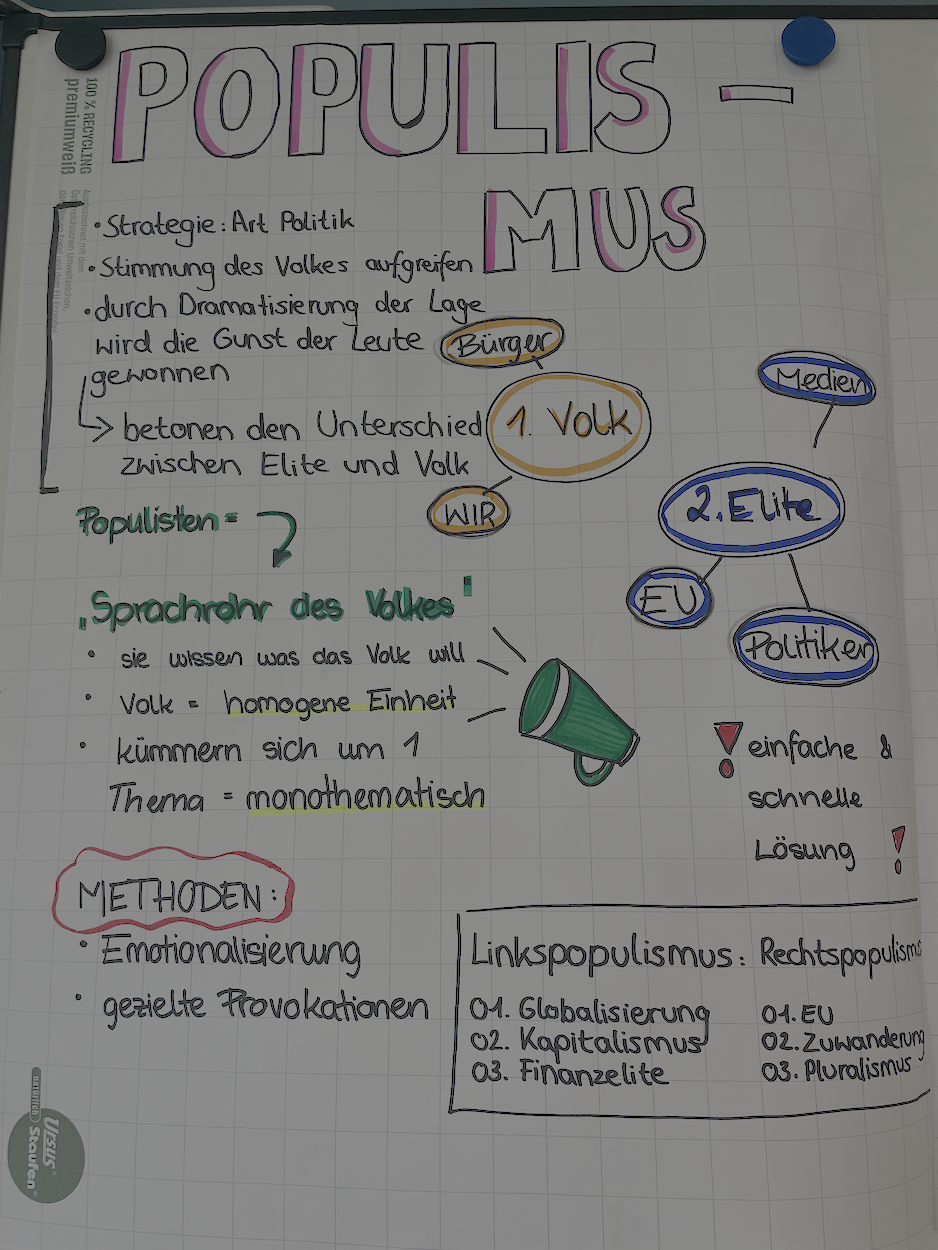 POPULIS -
MUS
100 % RECYCLING
premiumweiß
• Strategie: Art Politik
• Stimmung des Volkes aufgreifen
• durch Dramatisierung der Lage
wird die Gunst der Leute
gewonnen
→ betonen den Unterschied
zwischen Elite und Volk
Bürger
1. Volk
WIR
Medien
2. Elite
EU
Politiker
Populisten =
„Sprachrohr des Volkes"
• sie wissen was das Volk will
• Volk = homogene Einheit
• kümmern sich um 1
Thema = monothematisch
! einfache &
schnelle
Lösung !
METHODEN:
• Emotionalisierung
• gezielte Provokationen
Linkspopulismus:
01. Globalisierung
02. Kapitalismus
03. Finanzelite
Rechtspopulismus
01. EU
02. Zuwanderung
03. Pluralismus
natürlich
URSUS®
Staufen®